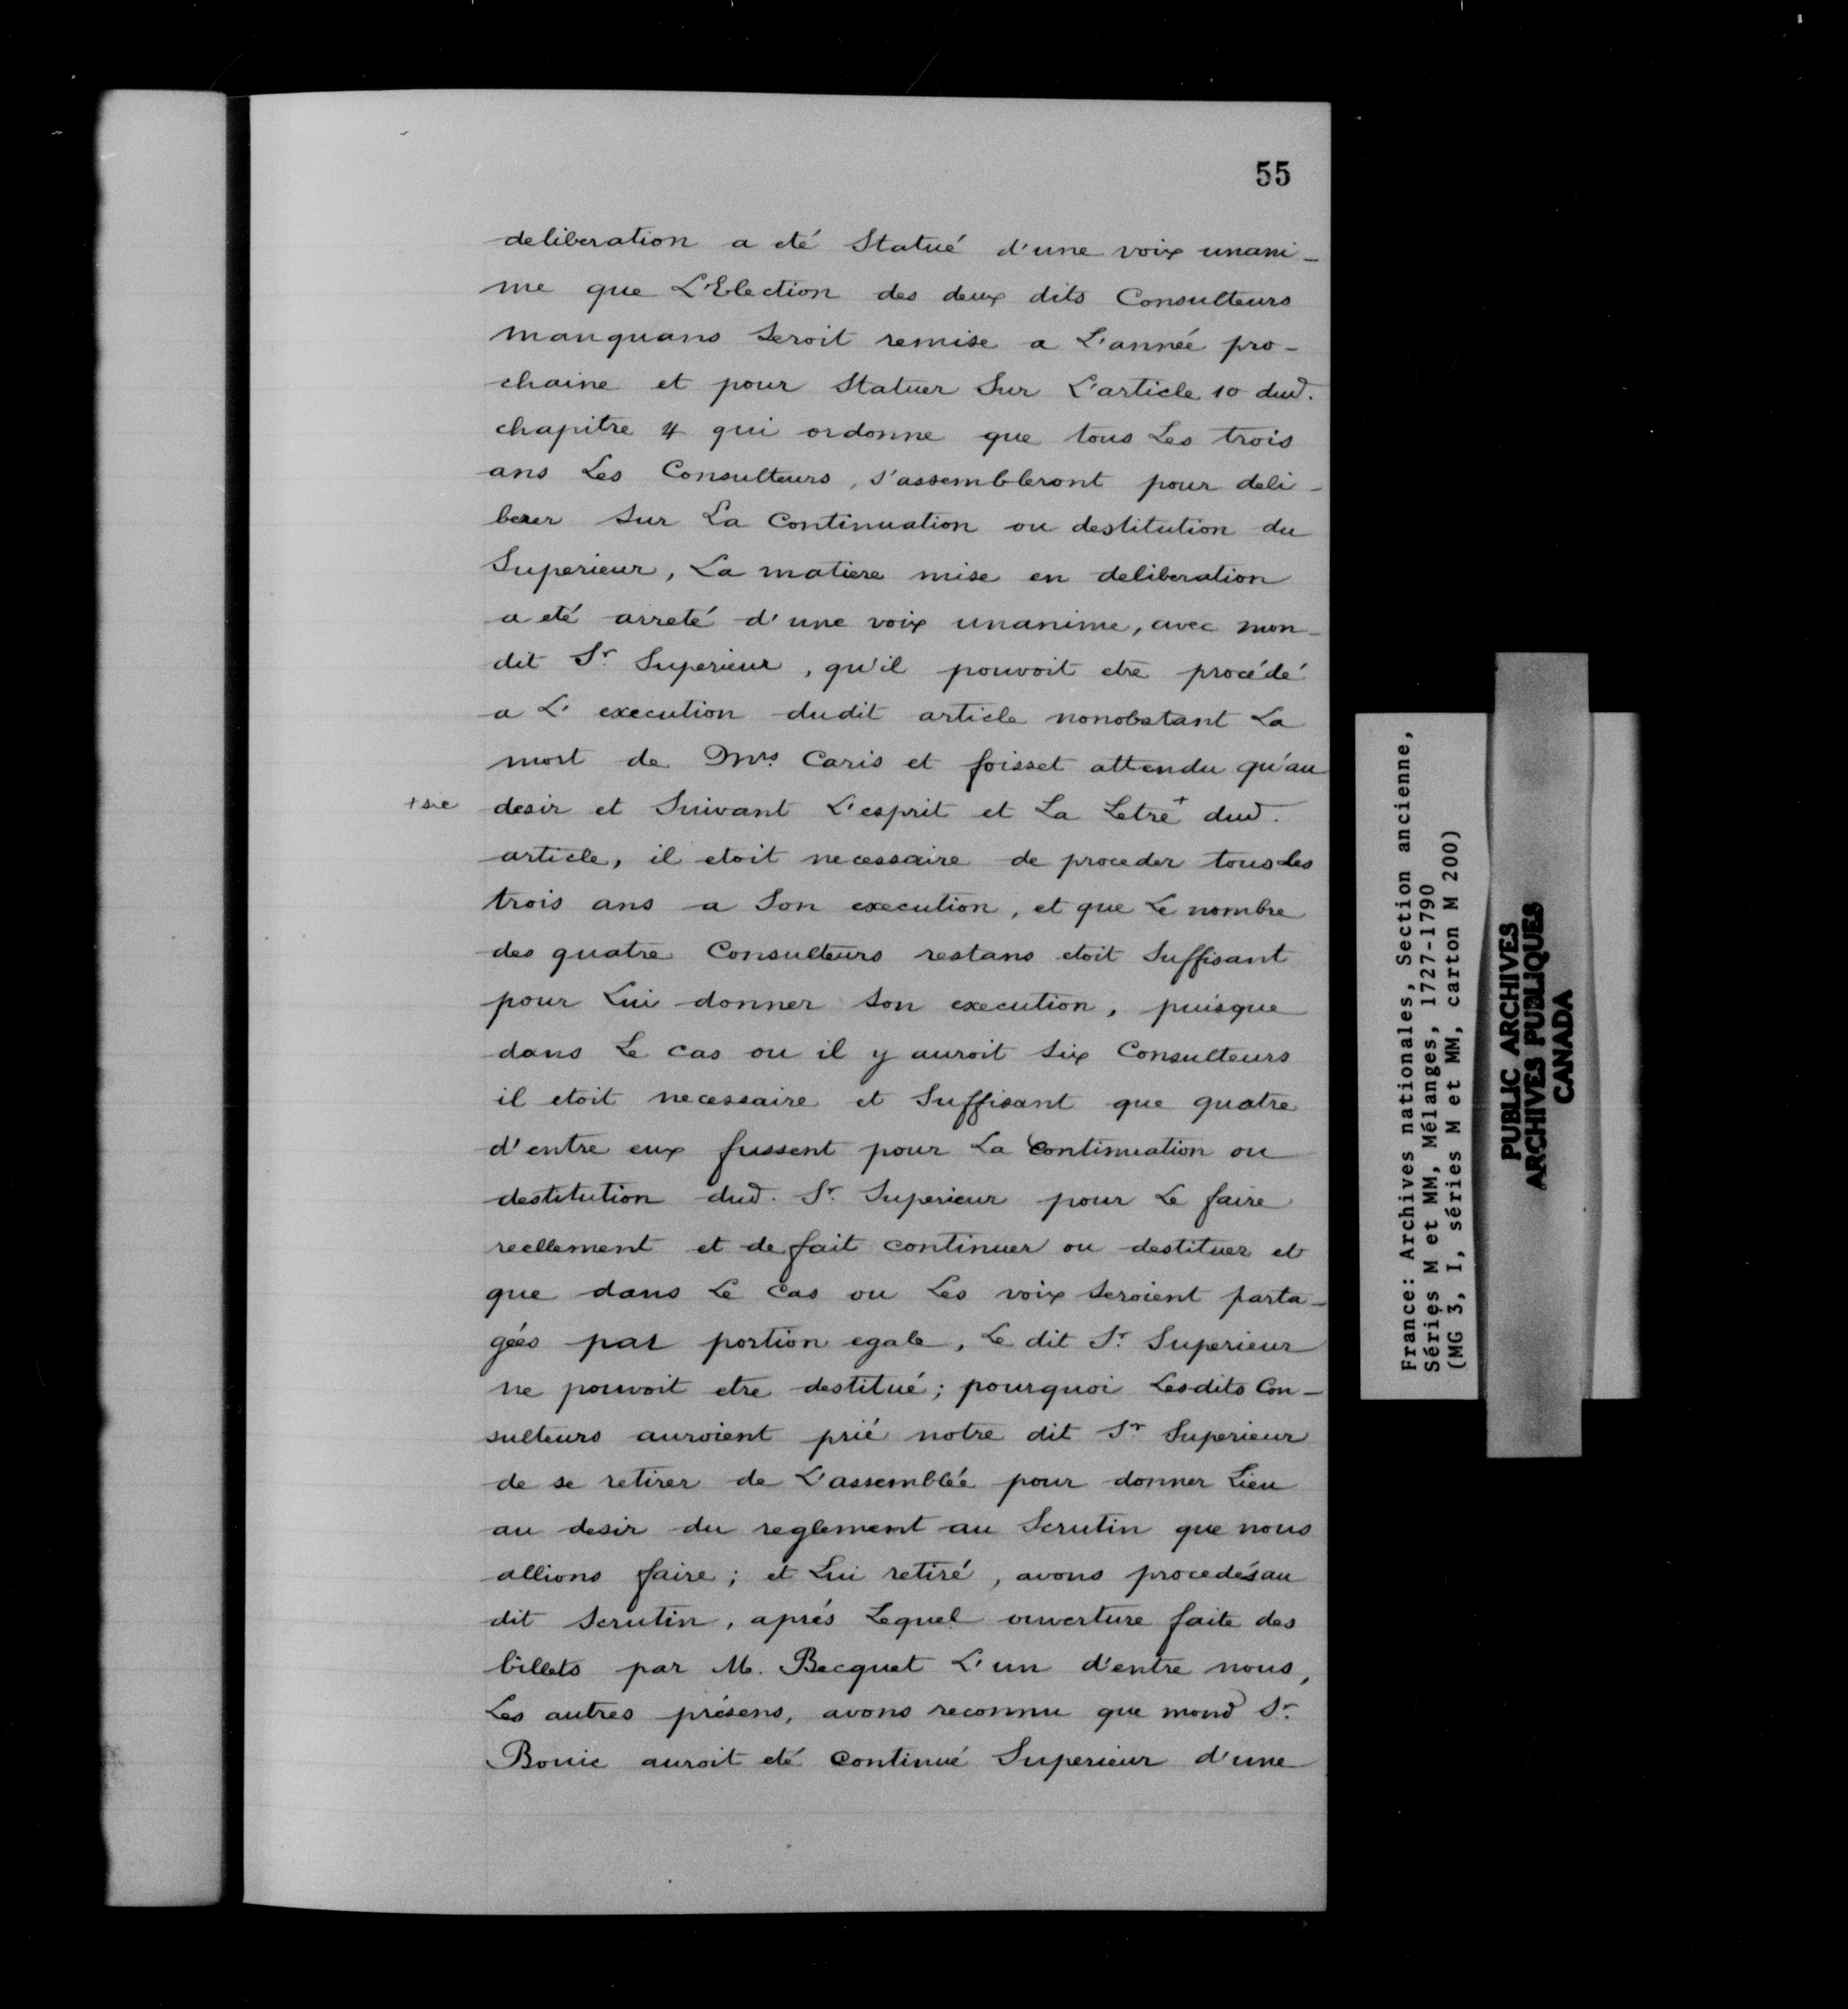 55
deliberation a eté Statué d'une voix unani-
me que L'Election des deux dits Consulteurs
manquans seroit remise a L'année pro-
chaine et pour Statuer Sur L'article 10 dud.
chapitre 4 qui ordonne que tous Les trois
ans Les Consulteurs, s'assembleront pour deli-
berer sur La Continuation ou destitution du
Superieur, La matiere mise en deliberation
a eté arreté d'une voix unanime, avec mon-
dit Sr. Superieur, qu'il pouvoit etre procédé
a L' execution dudit article nonobstant La
mort de Mrs. Caris et foisset attendu qu'au
+ sic desir et Suivant L'esprit et La Letre+ dud.
article, il etoit necessaire de proceder tous Les
trois ans a Son execution, et que Le nombre
des quatre Consulteurs restans etoit Suffisant
pour Lui donner son execution, puisque
dans Le cas ou il y auroit six Consulteurs
il etoit necessaire et Suffisant que quatre
d'entre eux fussent pour La Continuation ou
destitution dud. Sr. Superieur pour Le faire
reellement et de fait continuer ou destituer et
que dans Le Cas ou Les voix seroient parta-
gées par portion egale, Le dit Sr. Superieur
ne pouvoit etre destitué; pourquoi Lesdits Con-
sulteurs auroient prié notre dit Sr Superieur
de se retirer de L'assemblée pour donner Lieu
au desir du reglement au Scrutin que nous
allions faire; et Lui retiré, avons procedés au
dit Scrutin, aprés Lequel ouverture faite des
billets par M. Becquet L'un d'entre nous,
Les autres présens, avons reconnu que mond Sr.
Bouic auroit eté Continué Superieur d'une
France: Archives nationales, Section ancienne,
Séries M et MM, Mélanges, 1727-1790
(MG 3, I, séries M et MM, carton M 200)
PUBLIC ARCHIVES
ARCHIVES PUBLIQUES
CANADA